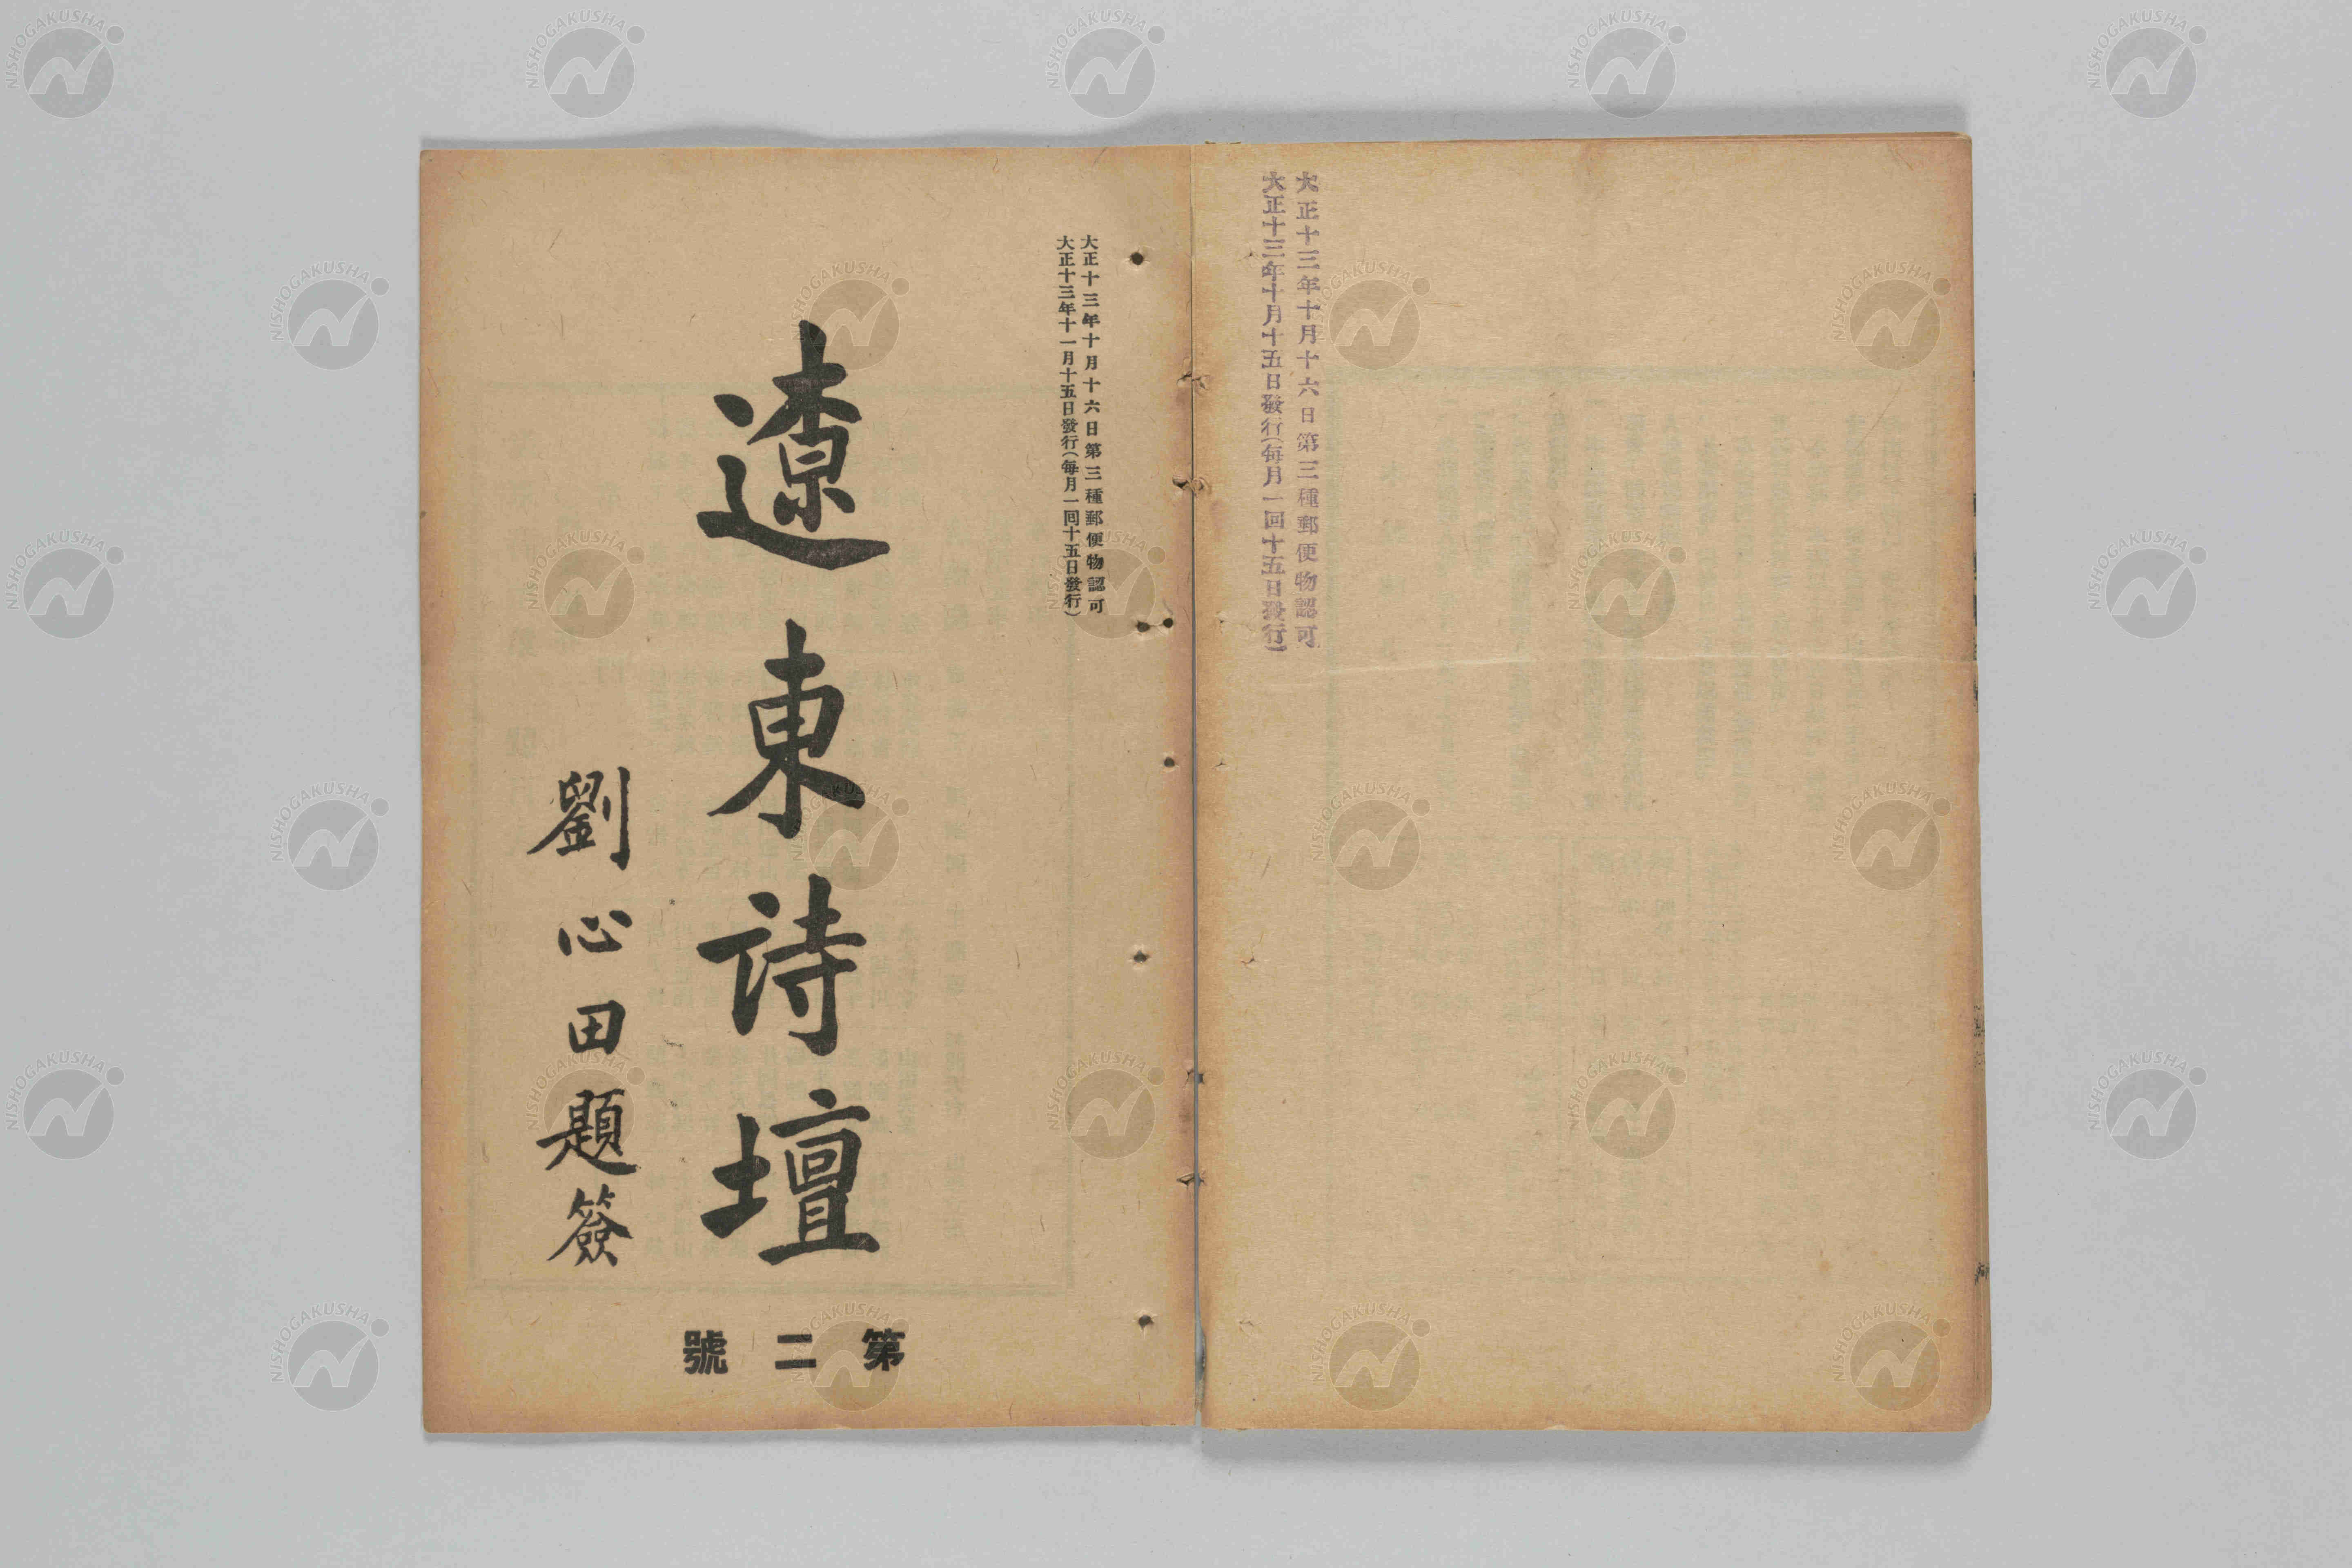 大正十三年十月十六日第三種郵便物認可
大正十三年十月十五日發行(每月一回十五日發行)
大正十三年十月十六日第三種郵便物認可
大正十三年十一月十五日發行(每月一回十五日發行)
遼東詩壇
劉心田題簽
第二號
NISHOGAKUSHA